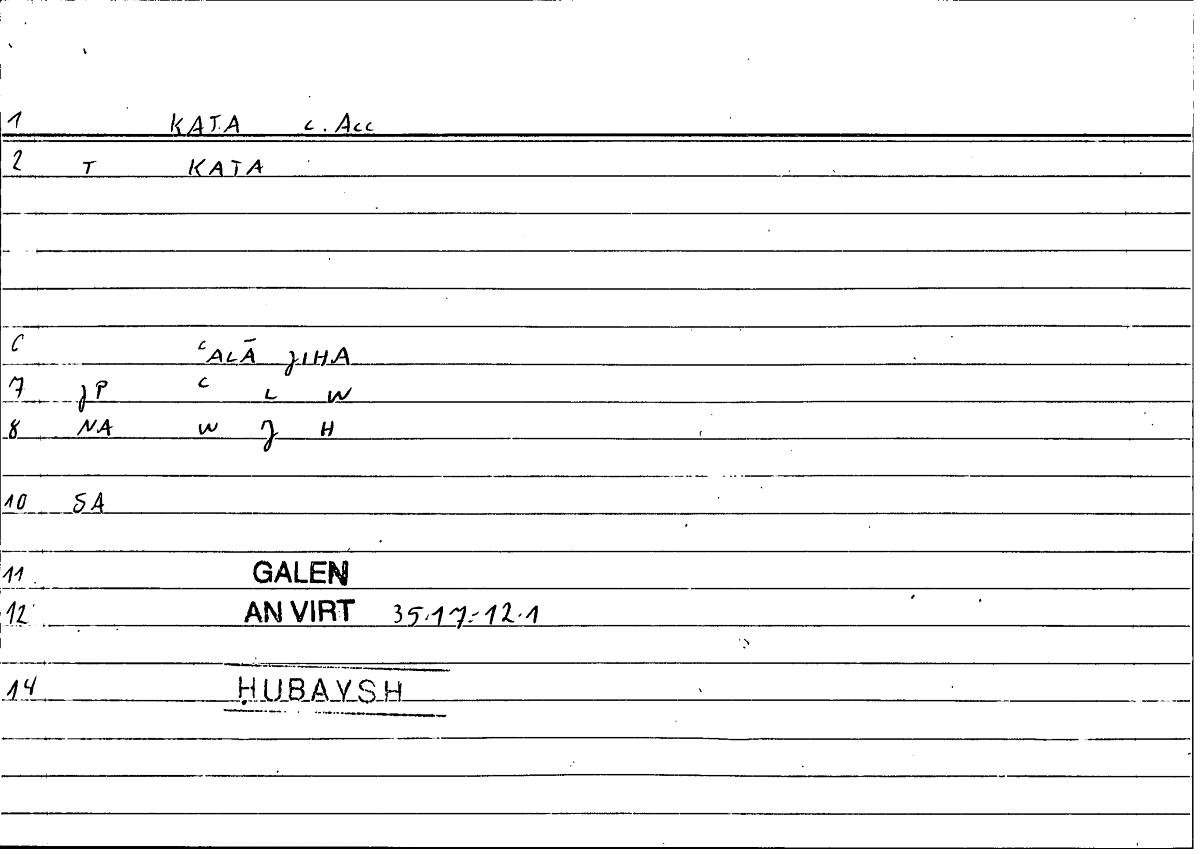 1 KATA c. Acc
2 T KATA
6 ʿALĀ JIHA
7 JP ʿ L W
8 NA W J H
10 SA
11 GALEN
12 AN VIRT 35.17-12.1
14 ḤUBAYSH